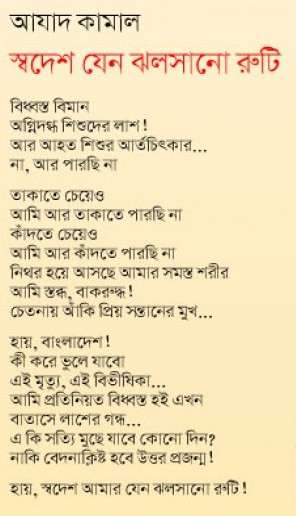 আযাদ কামাল
স্বদেশ যেন ঝলসানো রুটি
বিধ্বস্ত বিমান
অগ্নিদগ্ধ শিশুদের লাশ!
আর আহত শিশুর আর্তচিৎকার...
না, আর পারছি না
তাকাতে চেয়েও
আমি আর তাকাতে পারছি না
কাঁদতে চেয়েও
আমি আর কাঁদতে পারছি না
নিথর হয়ে আসছে আমার সমস্ত শরীর
আমি স্তব্ধ, বাকরুদ্ধ!
চেতনায় আঁকি প্রিয় সন্তানের মুখ...
হায়, বাংলাদেশ!
কী করে ভুলে যাবো
এই মৃত্যু, এই বিভীষিকা...
আমি প্রতিনিয়ত বিধ্বস্ত হই এখন
বাতাসে লাশের গন্ধ...
এ কি সত্যি মুছে যাবে কোনো দিন?
নাকি বেদনাক্লিষ্ট হবে উত্তর প্রজন্ম!
হায়, স্বদেশ আমার যেন ঝলসানো রুটি!